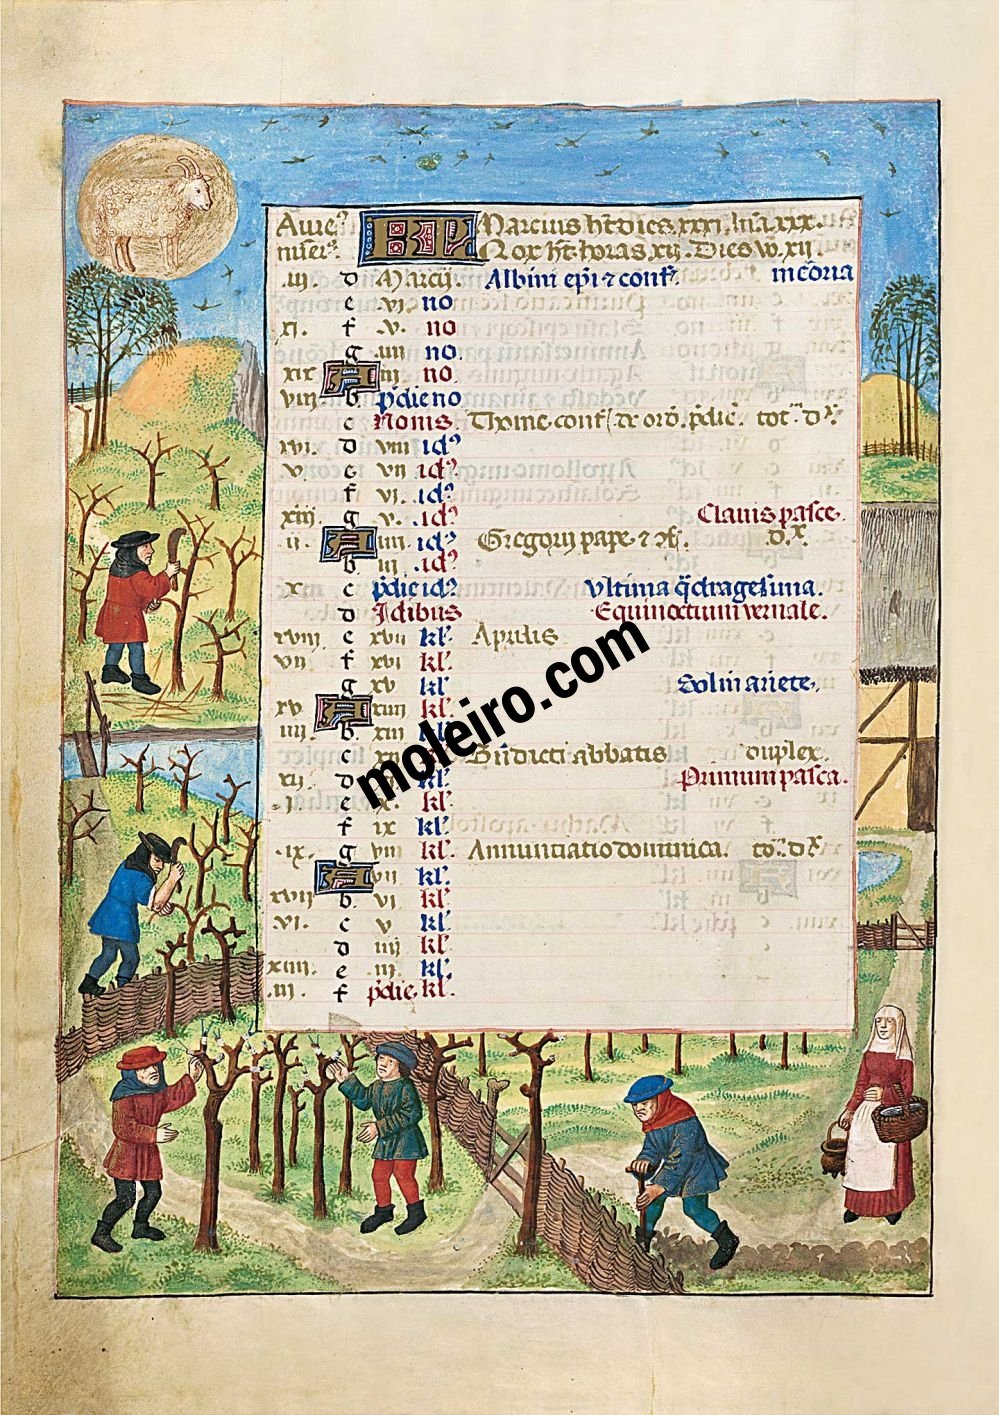 Aure? KL Marcius ht dies xxxi. lu̅a. xxx.
nu̅er? Nox ht horas xij. Dies vº xij.
.iij. d Marcij. Albini ep̅i ⁊ conf. in coria
e .vj. no
xi. f .v. no
g .iiij no
xix A iij no.
viij b. p̅die no
c Nonis Thome conf. de ord. p̅dic. tot. d.
xvi. d viij idꝰ
.v. e vij idꝰ
f vj. idꝰ
xiij. g .v. .idꝰ Clavis pasce.
.ii. A iiij. idꝰ Gregorij pape, ⁊ d.
b iij .idꝰ
.x. c p̅die idꝰ Vltima q̅dragesima.
d Idibus Equinoctium vernale.
xviij e xvij kl. Aprilis
vij f xvi kl.
g xv kl. Sol in ariete.
xv A xiiij kl.
iiij. b. xiij kl.
c xij Bn̅dicti abbatis duplex.
xij d kl. Primum pasca.
.j. e .x. kl.
f ix kl.
.ix. g viij kl. Annunciatio dominica. to. d.
A vij kl.
xvij b. vi kl.
.vi. c v kl.
d iiij kl.
xiiij. e .iij. kl.
.iij. f p̅die kl.
moleiro.com